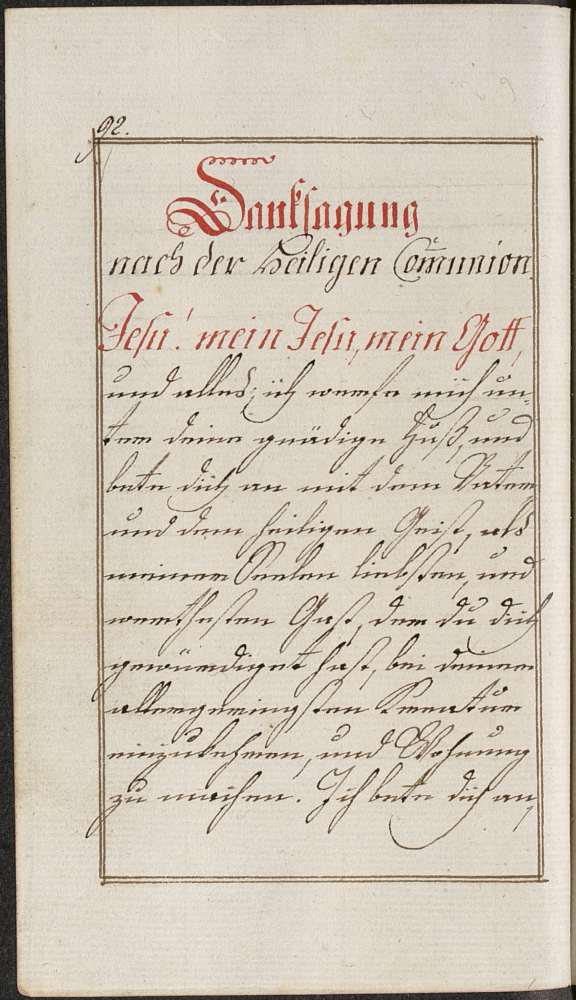 92.
Danksagung
nach der Heiligen Com̄union.
Jesu! mein Jesu, mein Gott,
und alles; ich werfe mich un-
ter deine gnädige Füß, und
bete dich an mit dem Vater,
und dem heiligen Geist, als
meiner Seelen liebsten, und
werthesten Gast, der du dich
gewürdiget hast, bei deiner
allergeringsten Kreatur
einzukehren, und Wohnung
zu machen. Ich bete dich an,